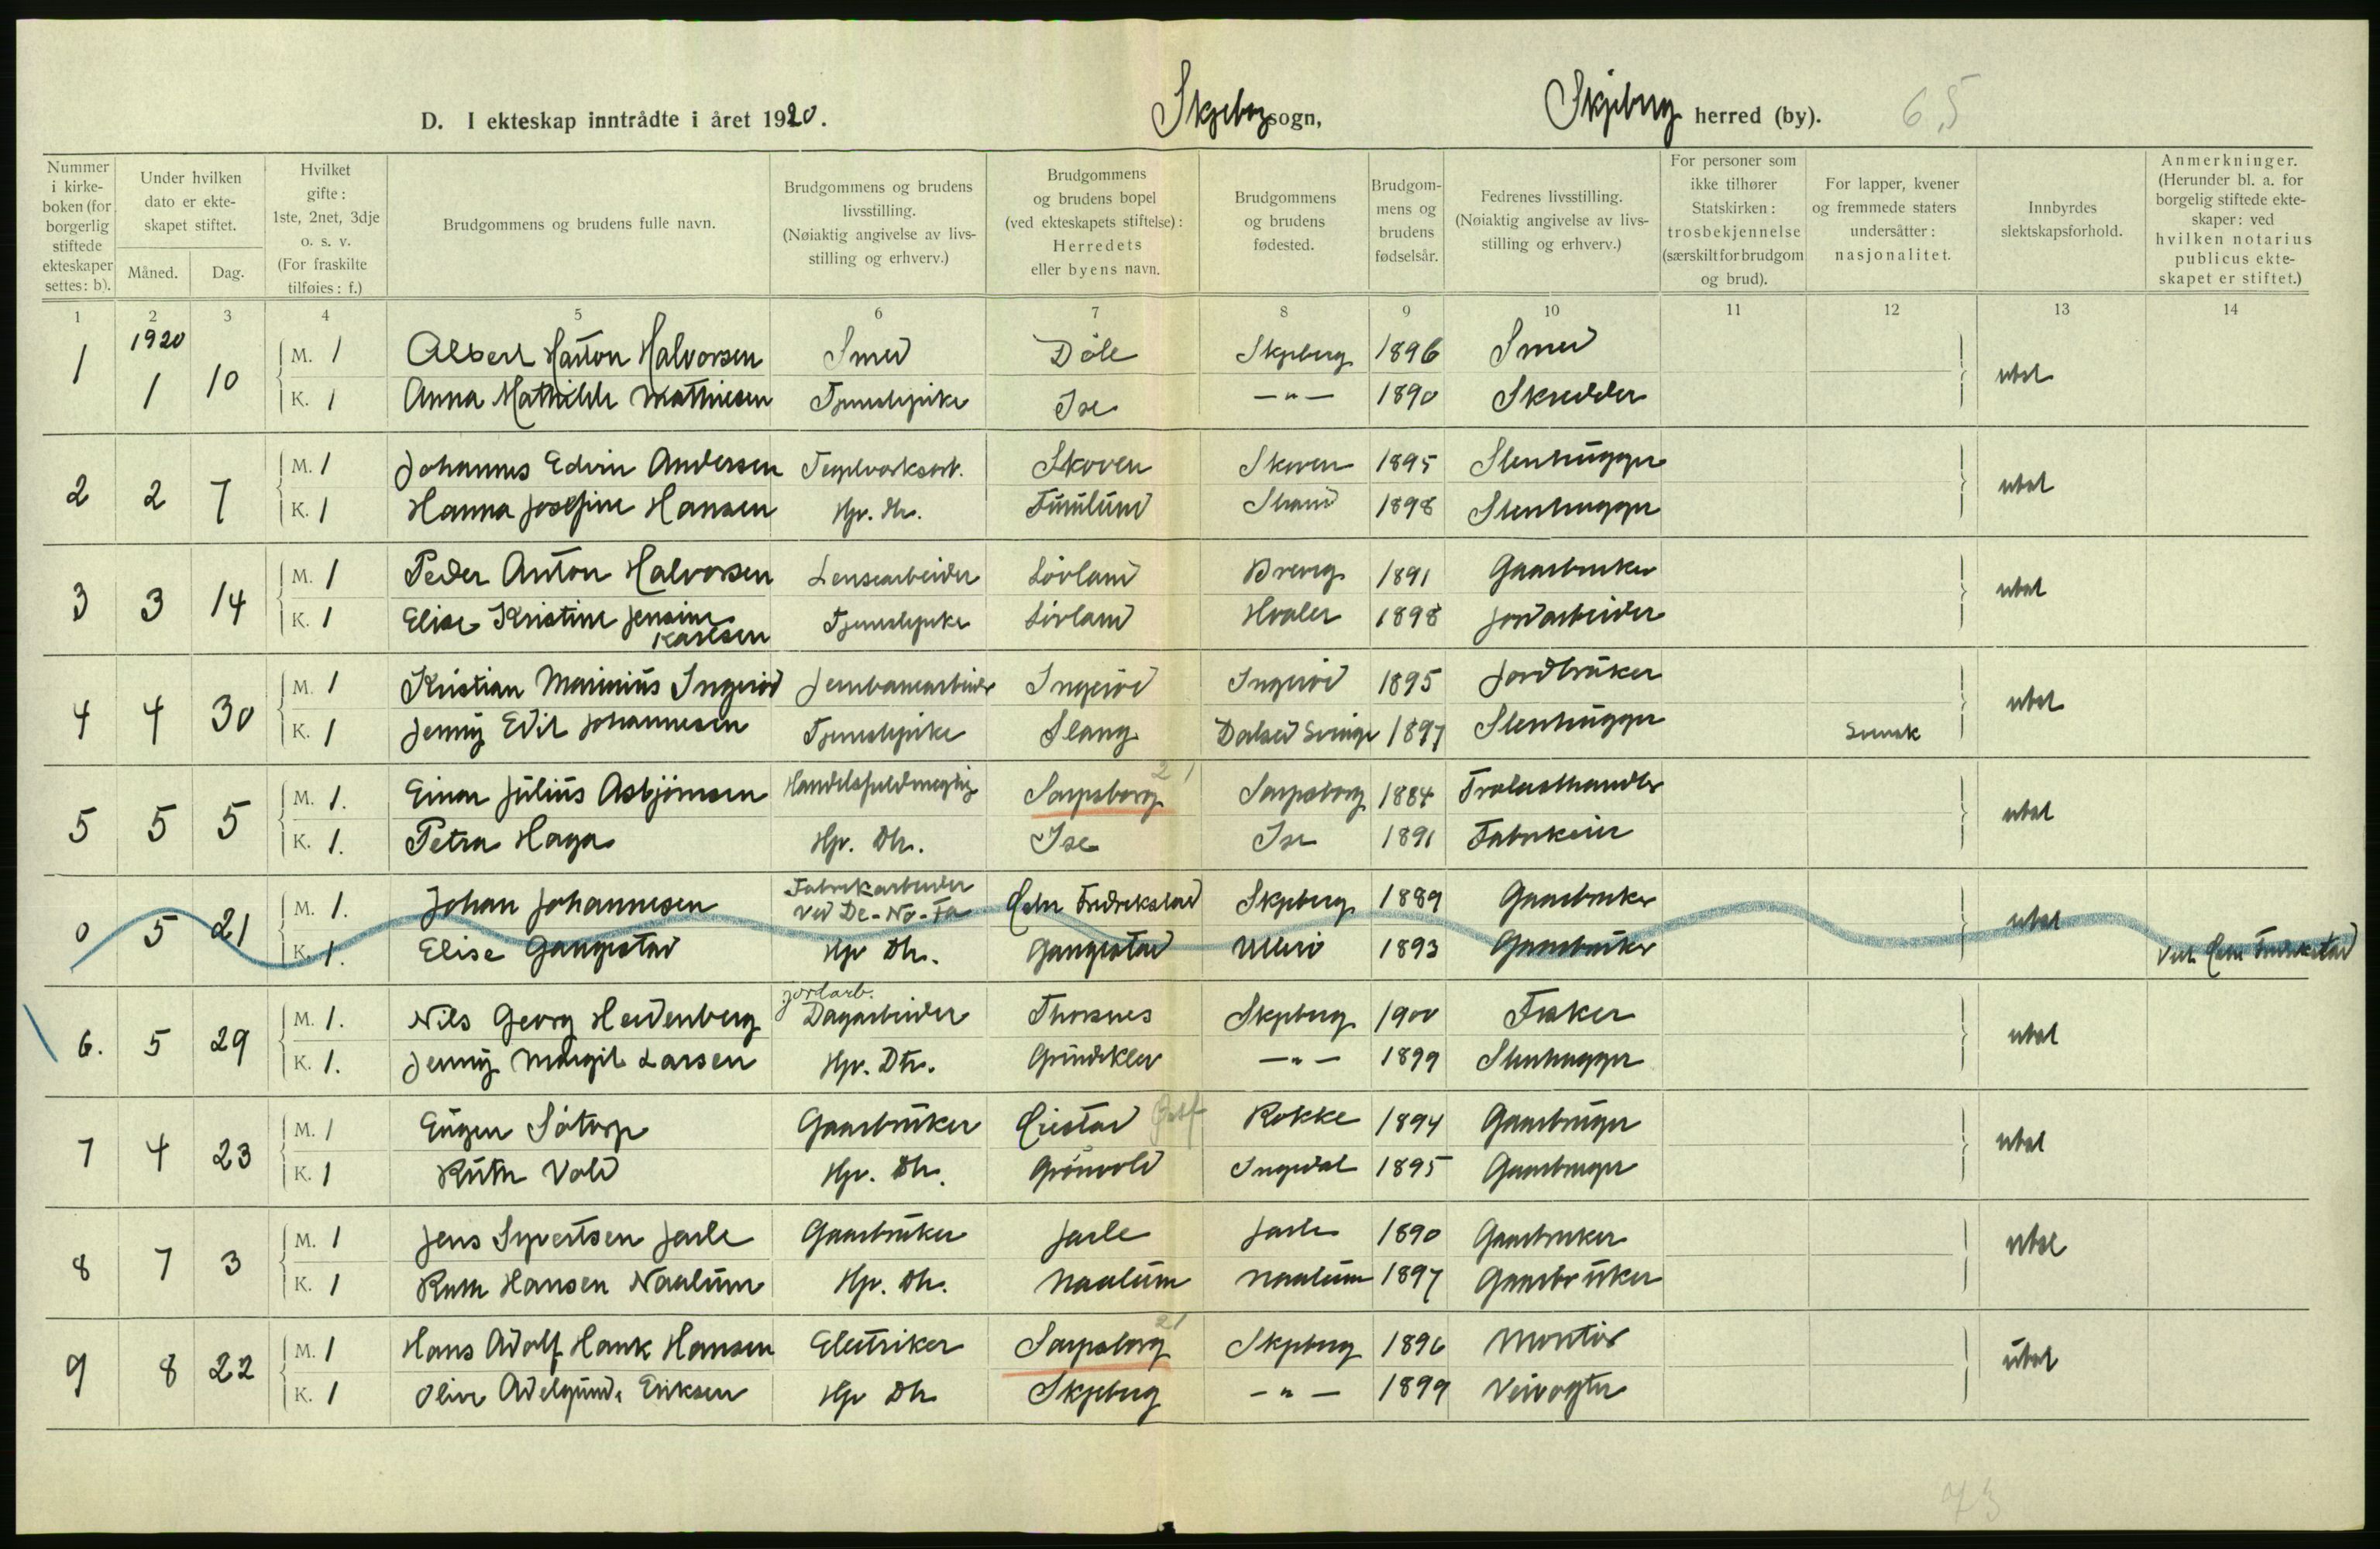 D. I ekteskap inntrådte i året 1920. Skjeberg sogn, Skjeberg herred (by). 65
Nummer i kirkeboken (for borgerlig stiftede ekteskaper settes: b).
Under hvilken dato er ekteskapet stiftet.
Måned. Dag.
Hvilket gifte: 1ste, 2net, 3dje o. s. v. (For fraskilte tilføies: f.)
Brudgommens og brudens fulle navn.
Brudgommens og brudens livsstilling. (Nøiaktig angivelse av livsstilling og erhverv.)
Brudgommens og brudens bopel (ved ekteskapets stiftelse): Herredets eller byens navn.
Brudgommens og brudens fødested.
Brudgommens og brudens fødselsår.
Fedrenes livsstilling. (Nøiaktig angivelse av livsstilling og erhverv.)
For personer som ikke tilhører Statskirken: trosbekjennelse (særskilt for brudgom og brud).
For lapper, kvener og fremmede staters undersåtter: nasjonalitet.
Innbyrdes slektskapsforhold.
Anmerkninger. (Herunder bl. a. for borgelig stiftede ekteskaper: ved hvilken notarius publicus ekteskapet er stiftet.)
1 2 3 4 5 6 7 8 9 10 11 12 13 14
1920
1 1 10 M. 1 Albert Halvorsen Smed Skjeberg 1896 Smed ubesl
K. 1 Anna Mathilde Mathiesen Tjenestepike Ise —"— 1890 Skredder
2 2 7 M. 1 Johannes Edvin Andersen Teglverksarb. Skoven Skoven 1895 Stenhugger ubesl
K. 1 Hanna Josefine Hansen Hp. Dtr. Furulund 1898 Stenhugger
3 3 14 M. 1 Peder Anton Halvorsen Lensearbeider Lövland Brevig 1891 Gaardbruker ubesl
K. 1 Elise Kristine Jensine Karlsen Tjenestepike Lövland Hvaler 1898 Jordarbeider
4 4 30 M. 1 Kristian Marinius Ingeröd Jernbanearbeider Ingeröd Ingeröd 1895 Jordbruker ubesl
K. 1 Jenny Edit Johannesen Tjenestepike Slang 1897 Stenhugger Svensk
5 5 5 M. 1. Einar Julius Asbjörnsen Handelsfuldmegtig Sarpsborg 21 Sarpsborg 1884 Trælasthandler ubesl
K. 1. Petra Haga Hp. Dtr. Ise Ise 1891 Fabrikeier
0 5 21 M. 1. Johan Johannesen Fabrikarbeider ved De-No-Fa Fredrikstad Skjeberg 1889 Gaardbruker ubesl
K. 1. Elise Gangestad Hp Dtr. Gangestad Ullerö 1893 Gaardbruker Fredrikstad
6. 5 29 M. 1. Nils Georg Heidenberg jordarb. Dagarbeider Thorsnes Skjeberg 1900 Fisker ubesl
K. 1. Jenny Margit Larsen Hp. Dtr. Grindeklev —"— 1899 Stenhugger
7 4 23 M. 1 Eugen Såtorp Gaardbruker Rokke 1894 Gaardbruger ubesl
K. 1 Ruth Vold Hp. Dtr. Grönvold Ingedal 1895 Gaardbruger
8 7 3 M. 1 Jens Syvertsen Jarle Gaardbruker Jarle Jarle 1890 Gaardbruker ubesl
K. 1 Ruth Hansen Naalum Hp. Dtr. Naalum Naalum 1897 Gaardbruker
9 8 22 M. 1 Hans Adolf Hank Hansen Elektriker Sarpsborg 21 Skjeberg 1896 Montör ubesl
K. 1 Oline Adelgunde Eriksen Hp Dtr Skjeberg —"— 1899 Veivogter
73